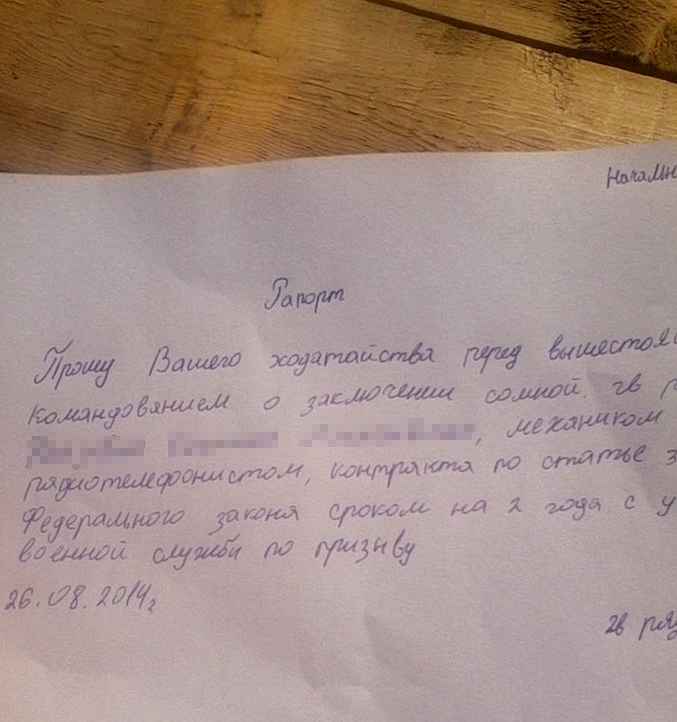 Началь
Рапорт
Прошу Вашего ходатайства перед вышестоя
командованием о заключении сомной. гв р
, механиком
радиотелефонистом, контракта по статье 3
Федерального закона сроком на 2 года с у
военной службы по призыву
26.08.2014г
гв ряд